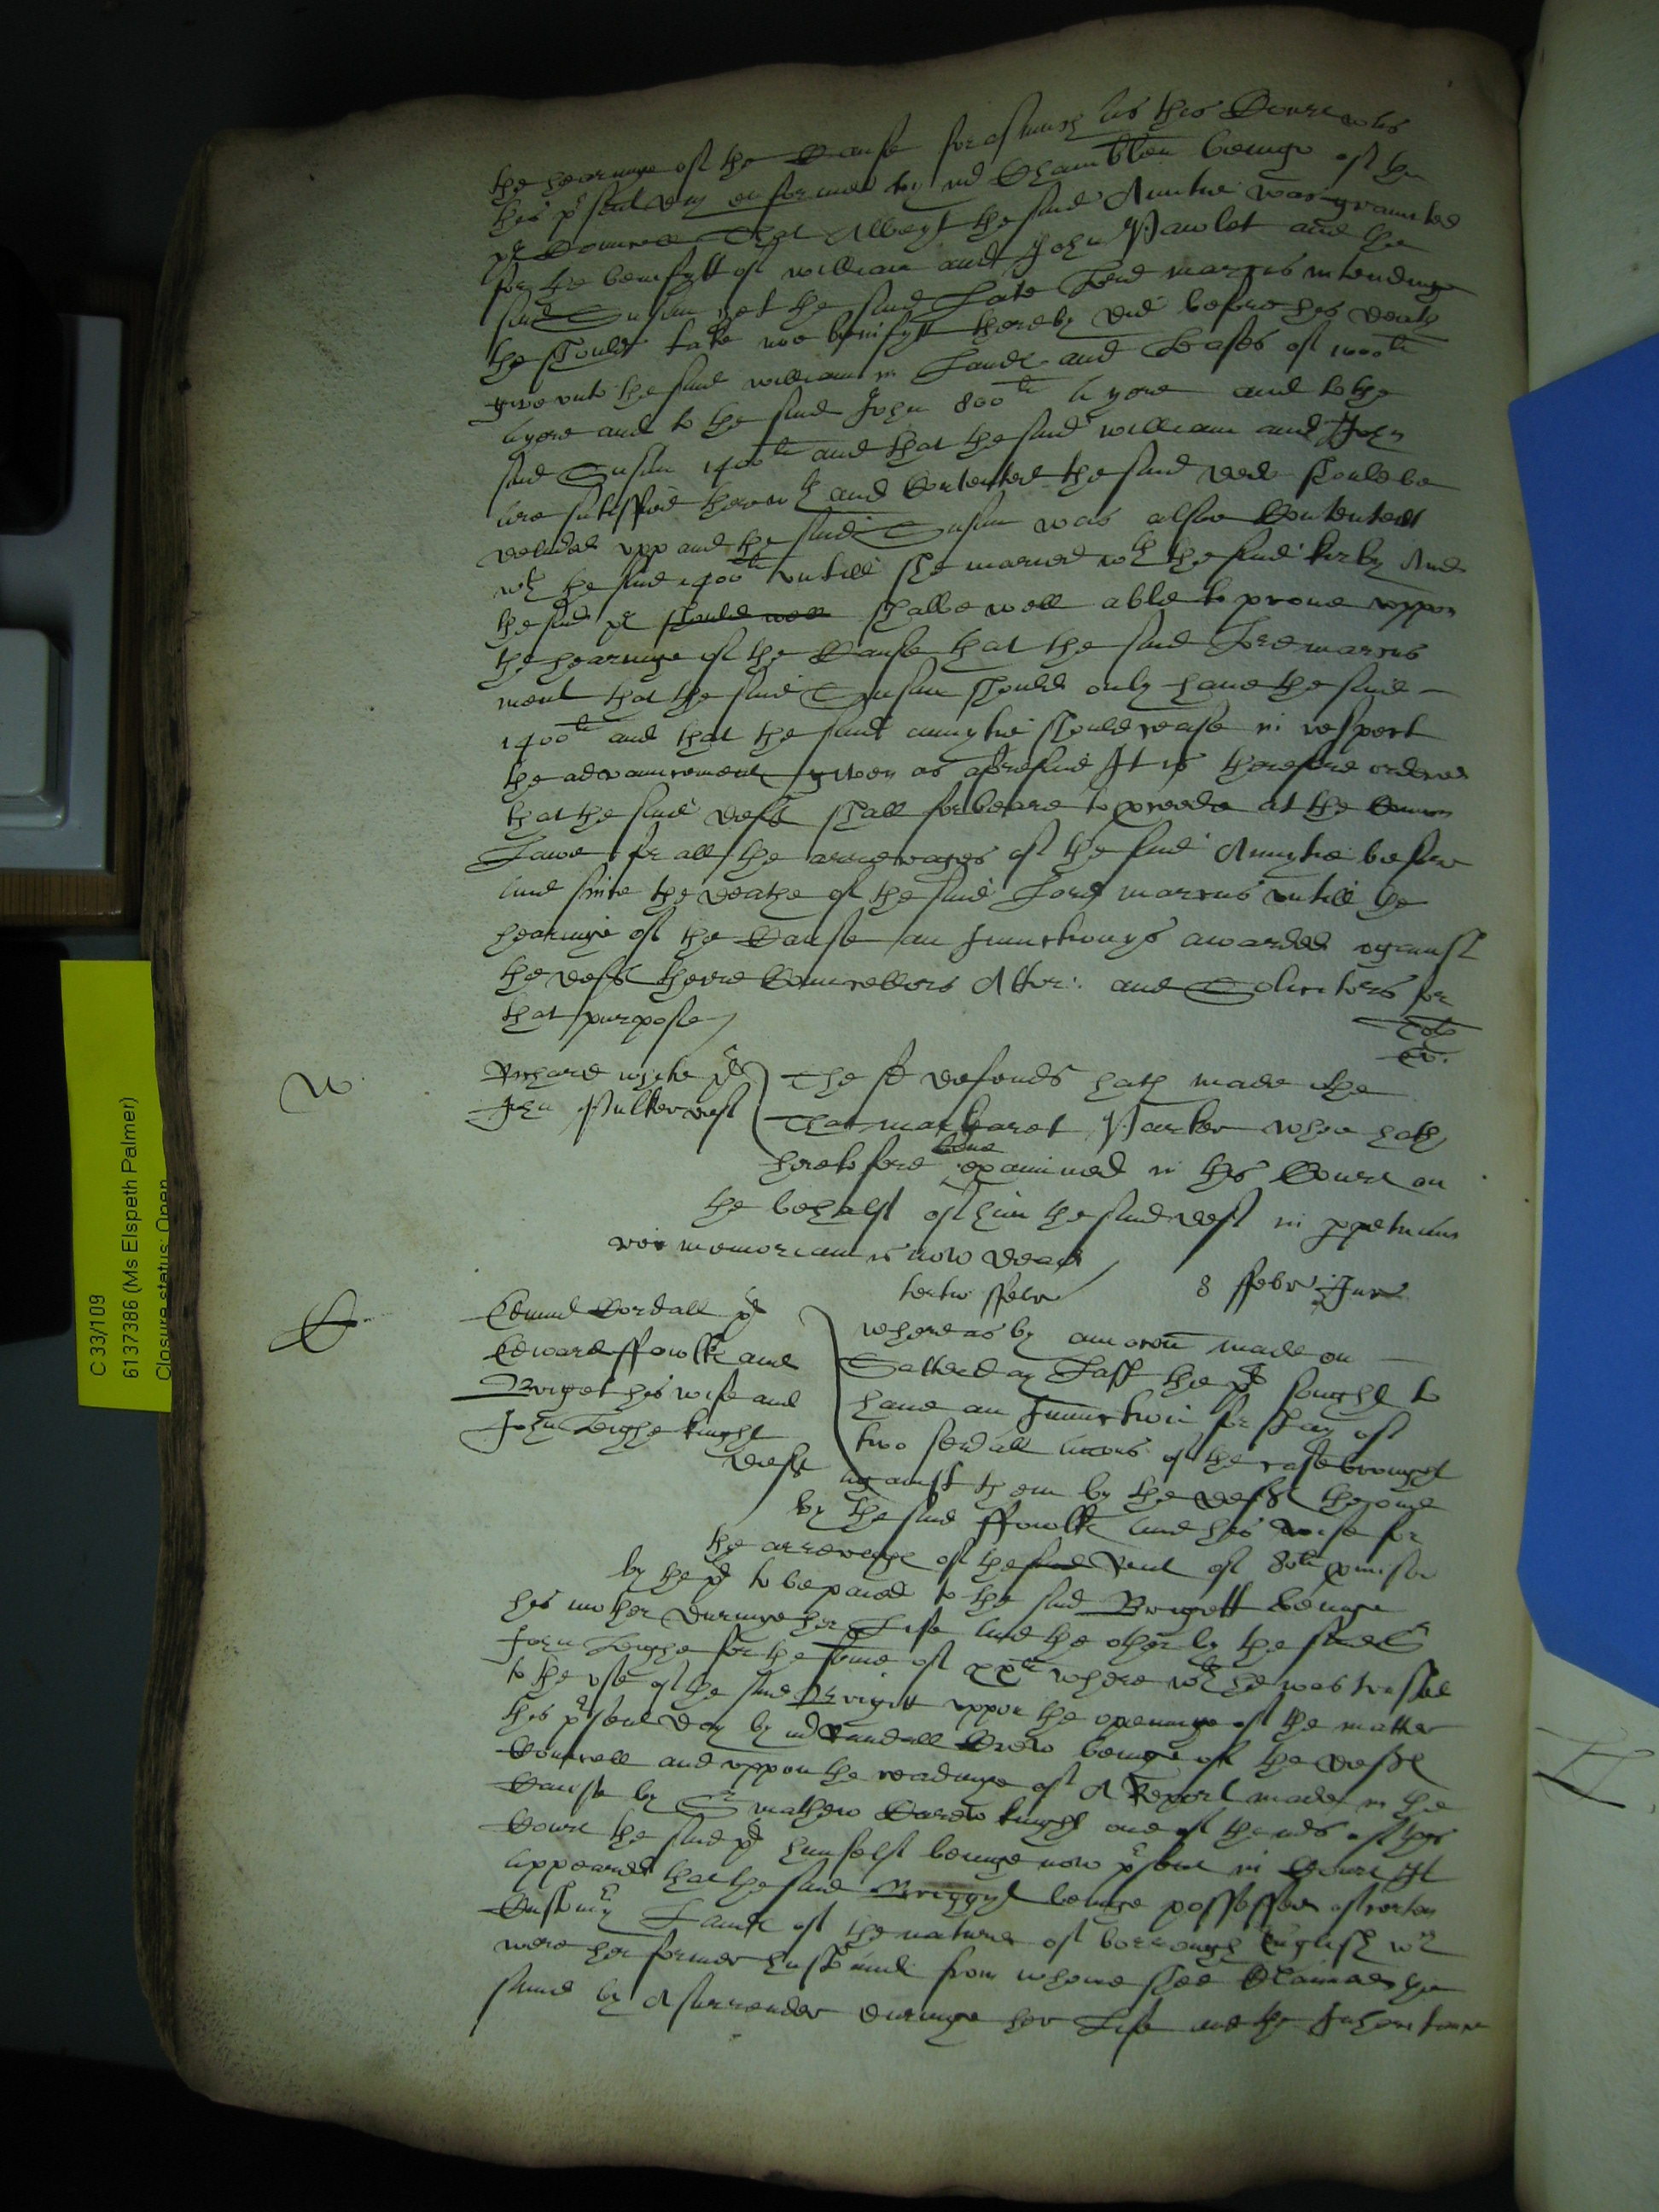 the hearinge of the Cause forasmuch as this Court was
this p̱sent day enformed by mr Chamblen beinge of the
pl Councell That Albeyt the said Anuitie was graunted
for the benifytt of william and John Pawlet and the
said Susan yet the said Late Lord marcus intendinge
she should take noe benifytt thereby did before his death
give unto the said william in Lande and Leases of 1000li
a yere and to the said John 800li a yere and to the
said Susan 1400li and that the said william and John
are satisfied therewth and Contented the said deed should be
delivded upp and the said Susan was alsoe Contented
wth the said 1400li untill she maried wth the said kirby And
the said pl should well shalbe well able to prove uppon
the hearinge of the Cause that the said Lord marcus
ment that the said Susan should only have the said
1400li and that the said anuytie should cease in respect
the advauncement given as aforesaid It is therefore ordered
that the said defts shall forbeare to pceede at the Comon
Lawe for all the arrerages of the said Anuytie before
and since the deathe of the said Lord marcus untill the
hearinge of the Cause an Iniunction ys awarded against
the defts theire Councellors Attor: and Solicitors for
that purpose
W
Richard wyche pl
John Pulter deft
The sd defendt hath made othe
That margaret Parker whoe hath
heretofore bene examined in this Court on
the behalf of him the said deft in ppetuam
rei memoriam is now dead
tertio ffebr
8 ffebr Jur
C
Edmund Cordall pl
Edward ffowlke and
Briget his wife and
John Leighe knight
defts
whereas by an order made on
Satterday Last the pl sought to
have an Iniunction for stay of
two sevall accons of the case brought
against them by the defts the one
by the said ffowlke and his wife for
the arrerage of the said Rent of 80li pmised
by the pl to be paied to the said Brigett beinge
his mother duringe her Life and the other by the said Sr
John Leighe for the some of xxli where wth he was trusted
to the use of the said Brigitt uppon the openinge of the matter
this p̱sent day by mr Randall Crew beinge of the defts
Councell and uppon the readinge of A Report made in the
Cause by Sr mathew Carew knight one of the mrs of this
Court the said pl himself beinge now p̱sent in Court It
appeared that the said Briggyt beinge possessed of certen
Customry Lande of the nature of borrough English wch
were her former husbande from whome shee Claimed the
same by A surrender duringe her Life and the Inheritance
C 33/109
6137386 (Ms Elspeth Palmer)
Closure status: Open